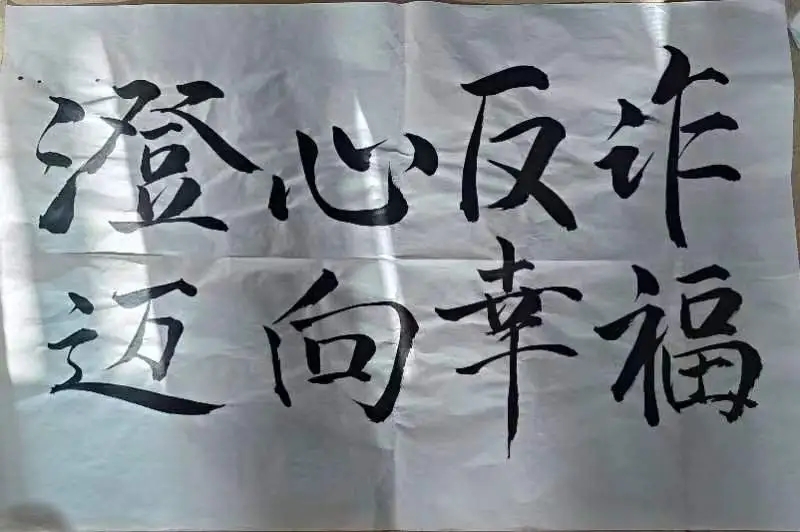 澄心反诈
迈向幸福